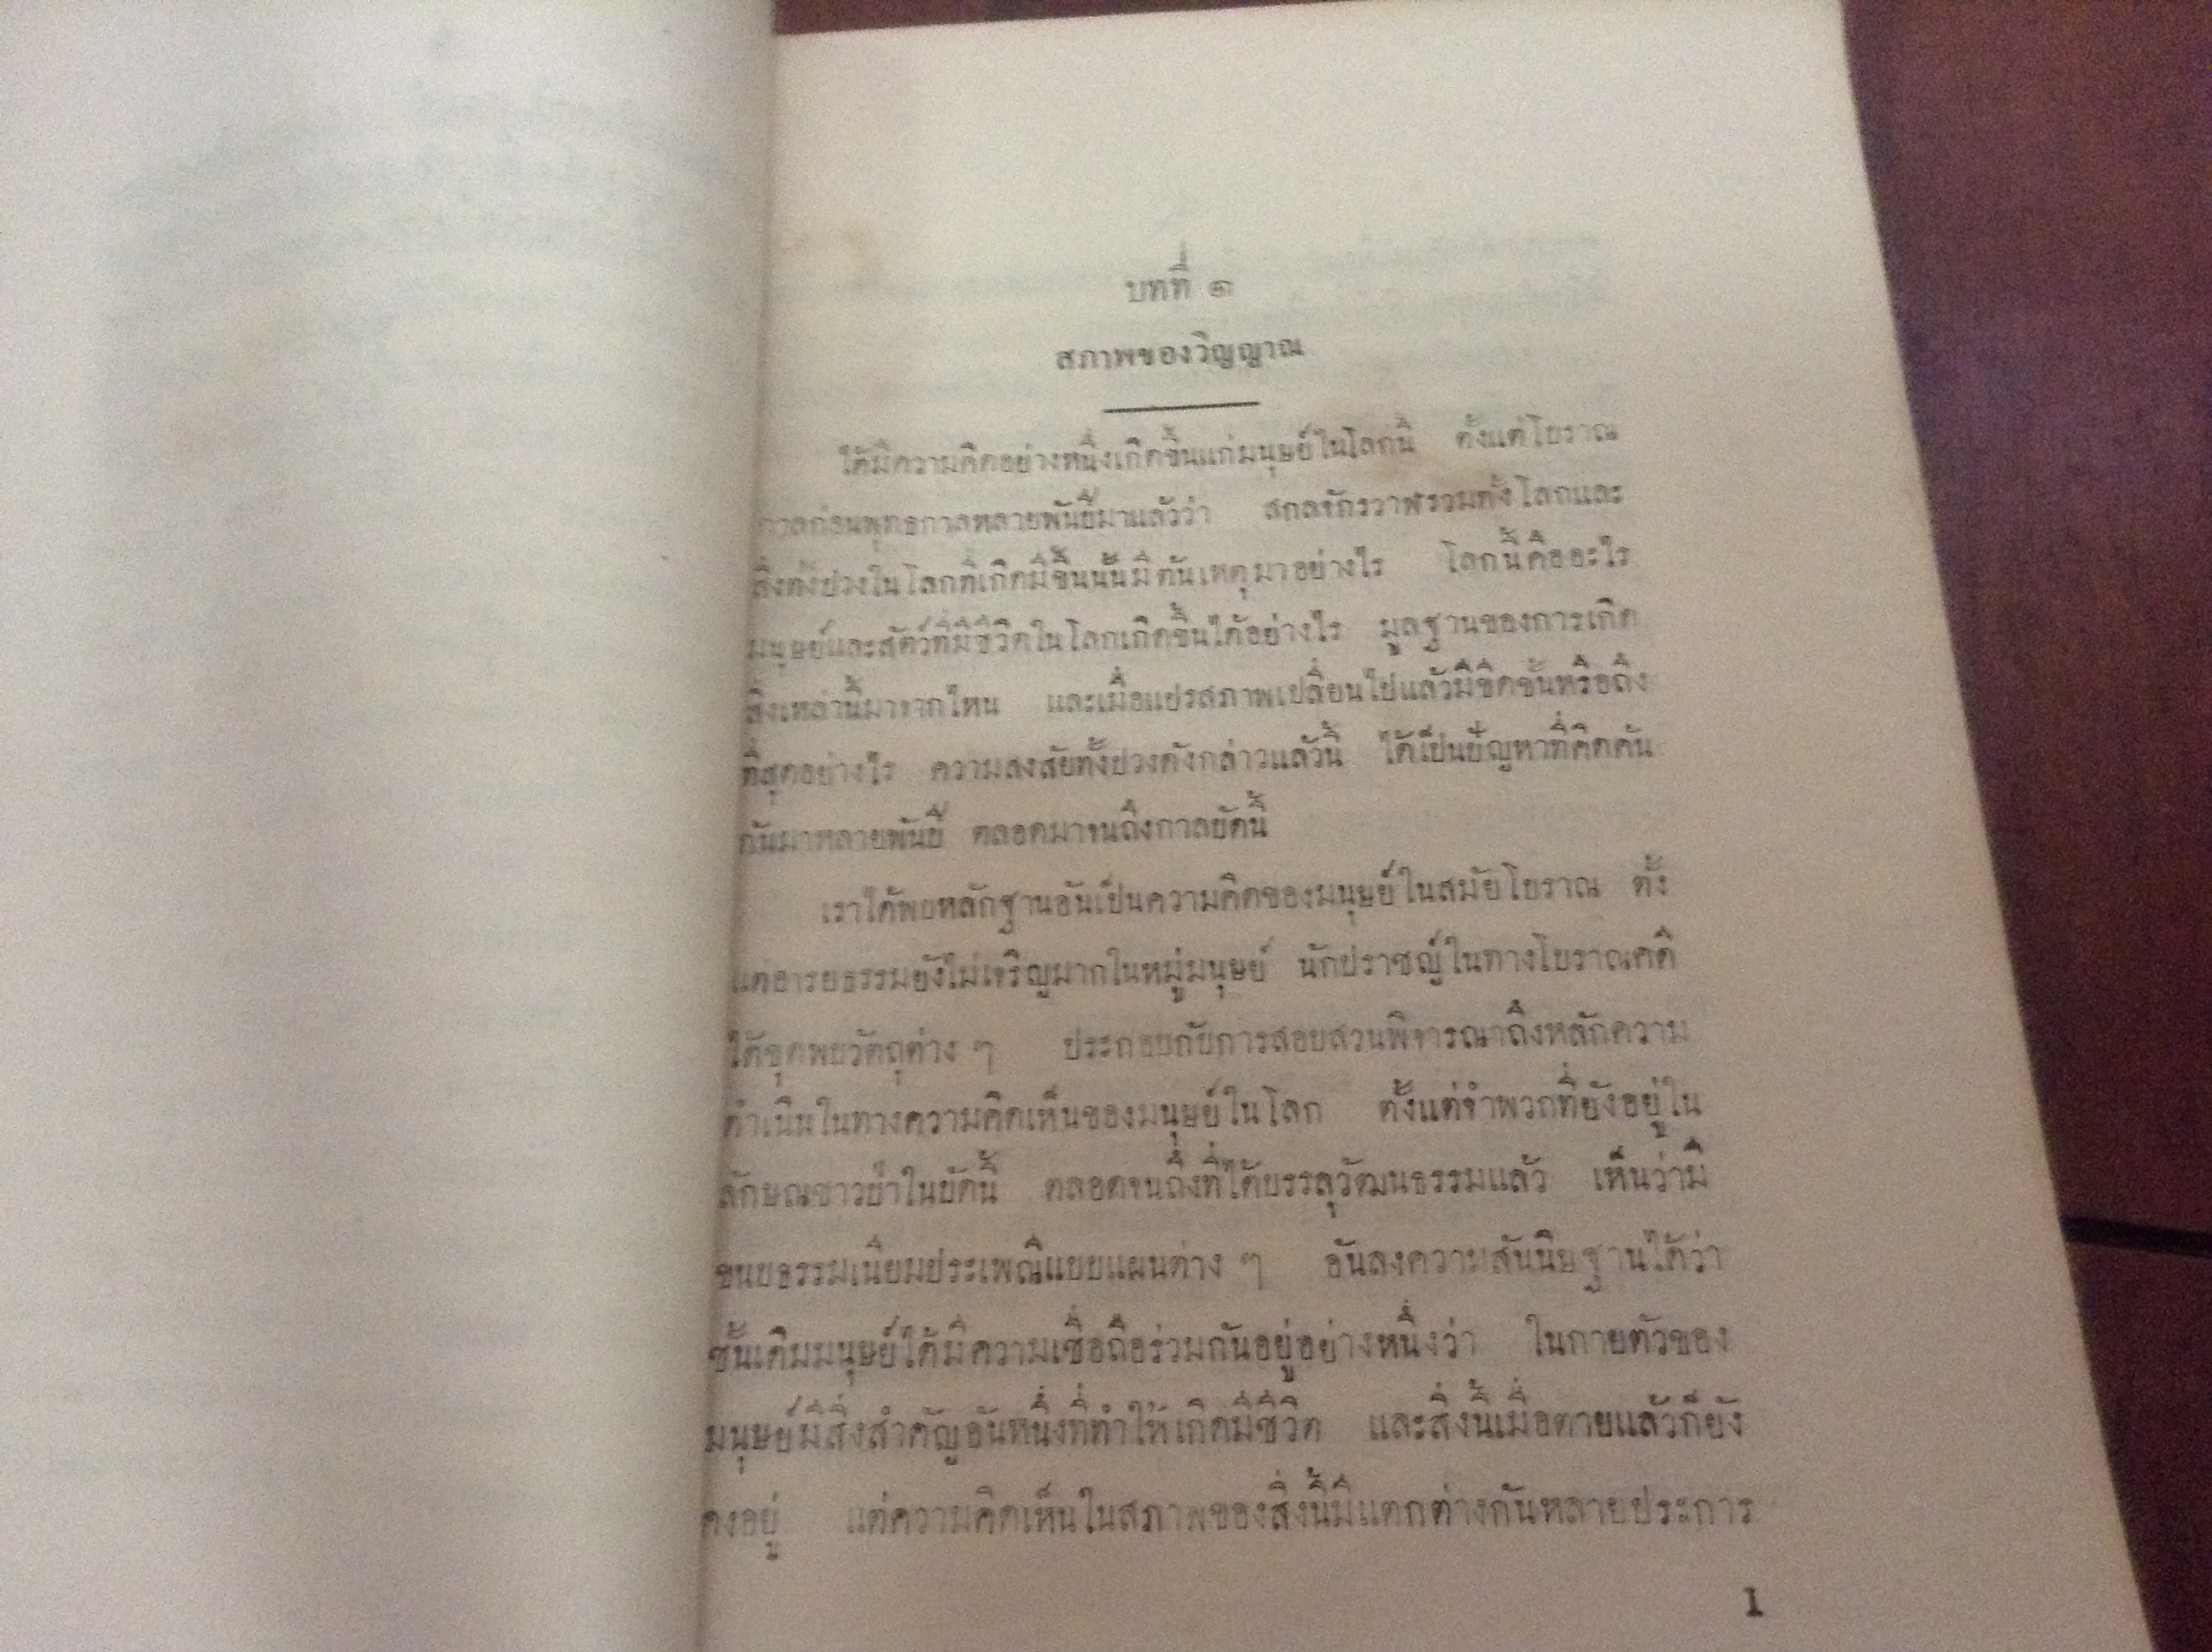 บทที่ ๑
สภาพของวิญญาณ
ได้มีความคิดอย่างหนึ่งเกิดขึ้นแก่มนุษย์ในโลกนี้ ตั้งแต่โบราณ
กาลก่อนพุทธกาลหลายพันปีมาแล้วว่า สกลจักรวาฬรวมทั้งโลกและ
สิ่งทั้งปวงในโลกที่เกิดมีขึ้นนั้นมีต้นเหตุมาอย่างไร โลกนี้คืออะไร
มนุษย์และสัตว์ที่มีชีวิตในโลกเกิดขึ้นได้อย่างไร มูลฐานของการเกิด
สิ่งเหล่านี้มาจากไหน และเมื่อแปรสภาพเปลี่ยนไปแล้วมีขีดขั้นหรือถึง
ที่สุดอย่างไร ความสงสัยทั้งปวงดังกล่าวแล้วนี้ ได้เป็นปัญหาที่คิดค้น
กันมาหลายพันปี ตลอดมาจนถึงกาลบัดนี้
เราได้พบหลักฐานอันเป็นความคิดของมนุษย์ในสมัยโบราณ ตั้ง
แต่อารยธรรมยังไม่เจริญมากในหมู่มนุษย์ นักปราชญ์ในทางโบราณคดี
ได้ขุดพบวัตถุต่าง ๆ ประกอบกับการสอบสวนพิจารณาถึงหลักความ
ดำเนินในทางความคิดเห็นของมนุษย์ในโลก ตั้งแต่จำพวกที่ยังอยู่ใน
ลักษณชาวป่าในบัดนี้ ตลอดจนถึงที่ได้บรรลุวัฒนธรรมแล้ว เห็นว่ามี
ขนบธรรมเนียมประเพณีแบบแผนต่าง ๆ อันลงความสันนิษฐานได้ว่า
ชั้นเดิมมนุษย์ได้มีความเชื่อถือร่วมกันอยู่อย่างหนึ่งว่า ในกายตัวของ
มนุษย์มีสิ่งสำคัญอันหนึ่งที่ทำให้เกิดมีชีวิต และสิ่งนี้เมื่อตายแล้วก็ยัง
คงอยู่ แต่ความคิดเห็นในสภาพของสิ่งนี้มีแตกต่างกันหลายประการ
1